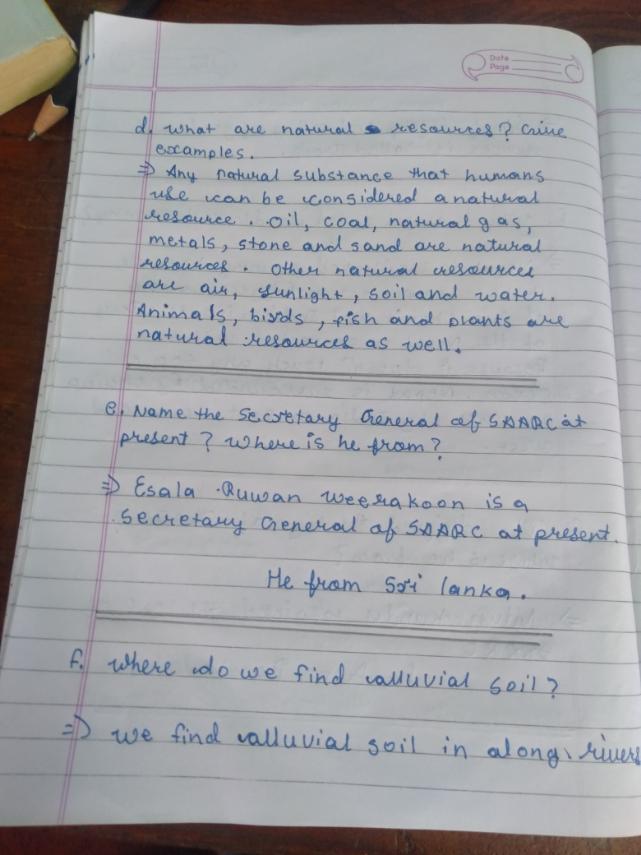 Date
Page
d. What are natural resources? Give
examples.
⇒ Any natural substance that humans
use can be considered a natural
resource. Oil, coal, natural gas,
metals, stone and sand are natural
resources. Other natural resources
are air, sunlight, soil and water.
Animals, birds, fish and plants are
natural resources as well.
e. Name the Secretary General of SAARC at
present? Where is he from?
⇒ Esala Ruwan Weerakoon is a
Secretary General of SAARC at present.
He from Sri lanka.
f. Where do we find alluvial soil?
⇒ We find alluvial soil in along rivers